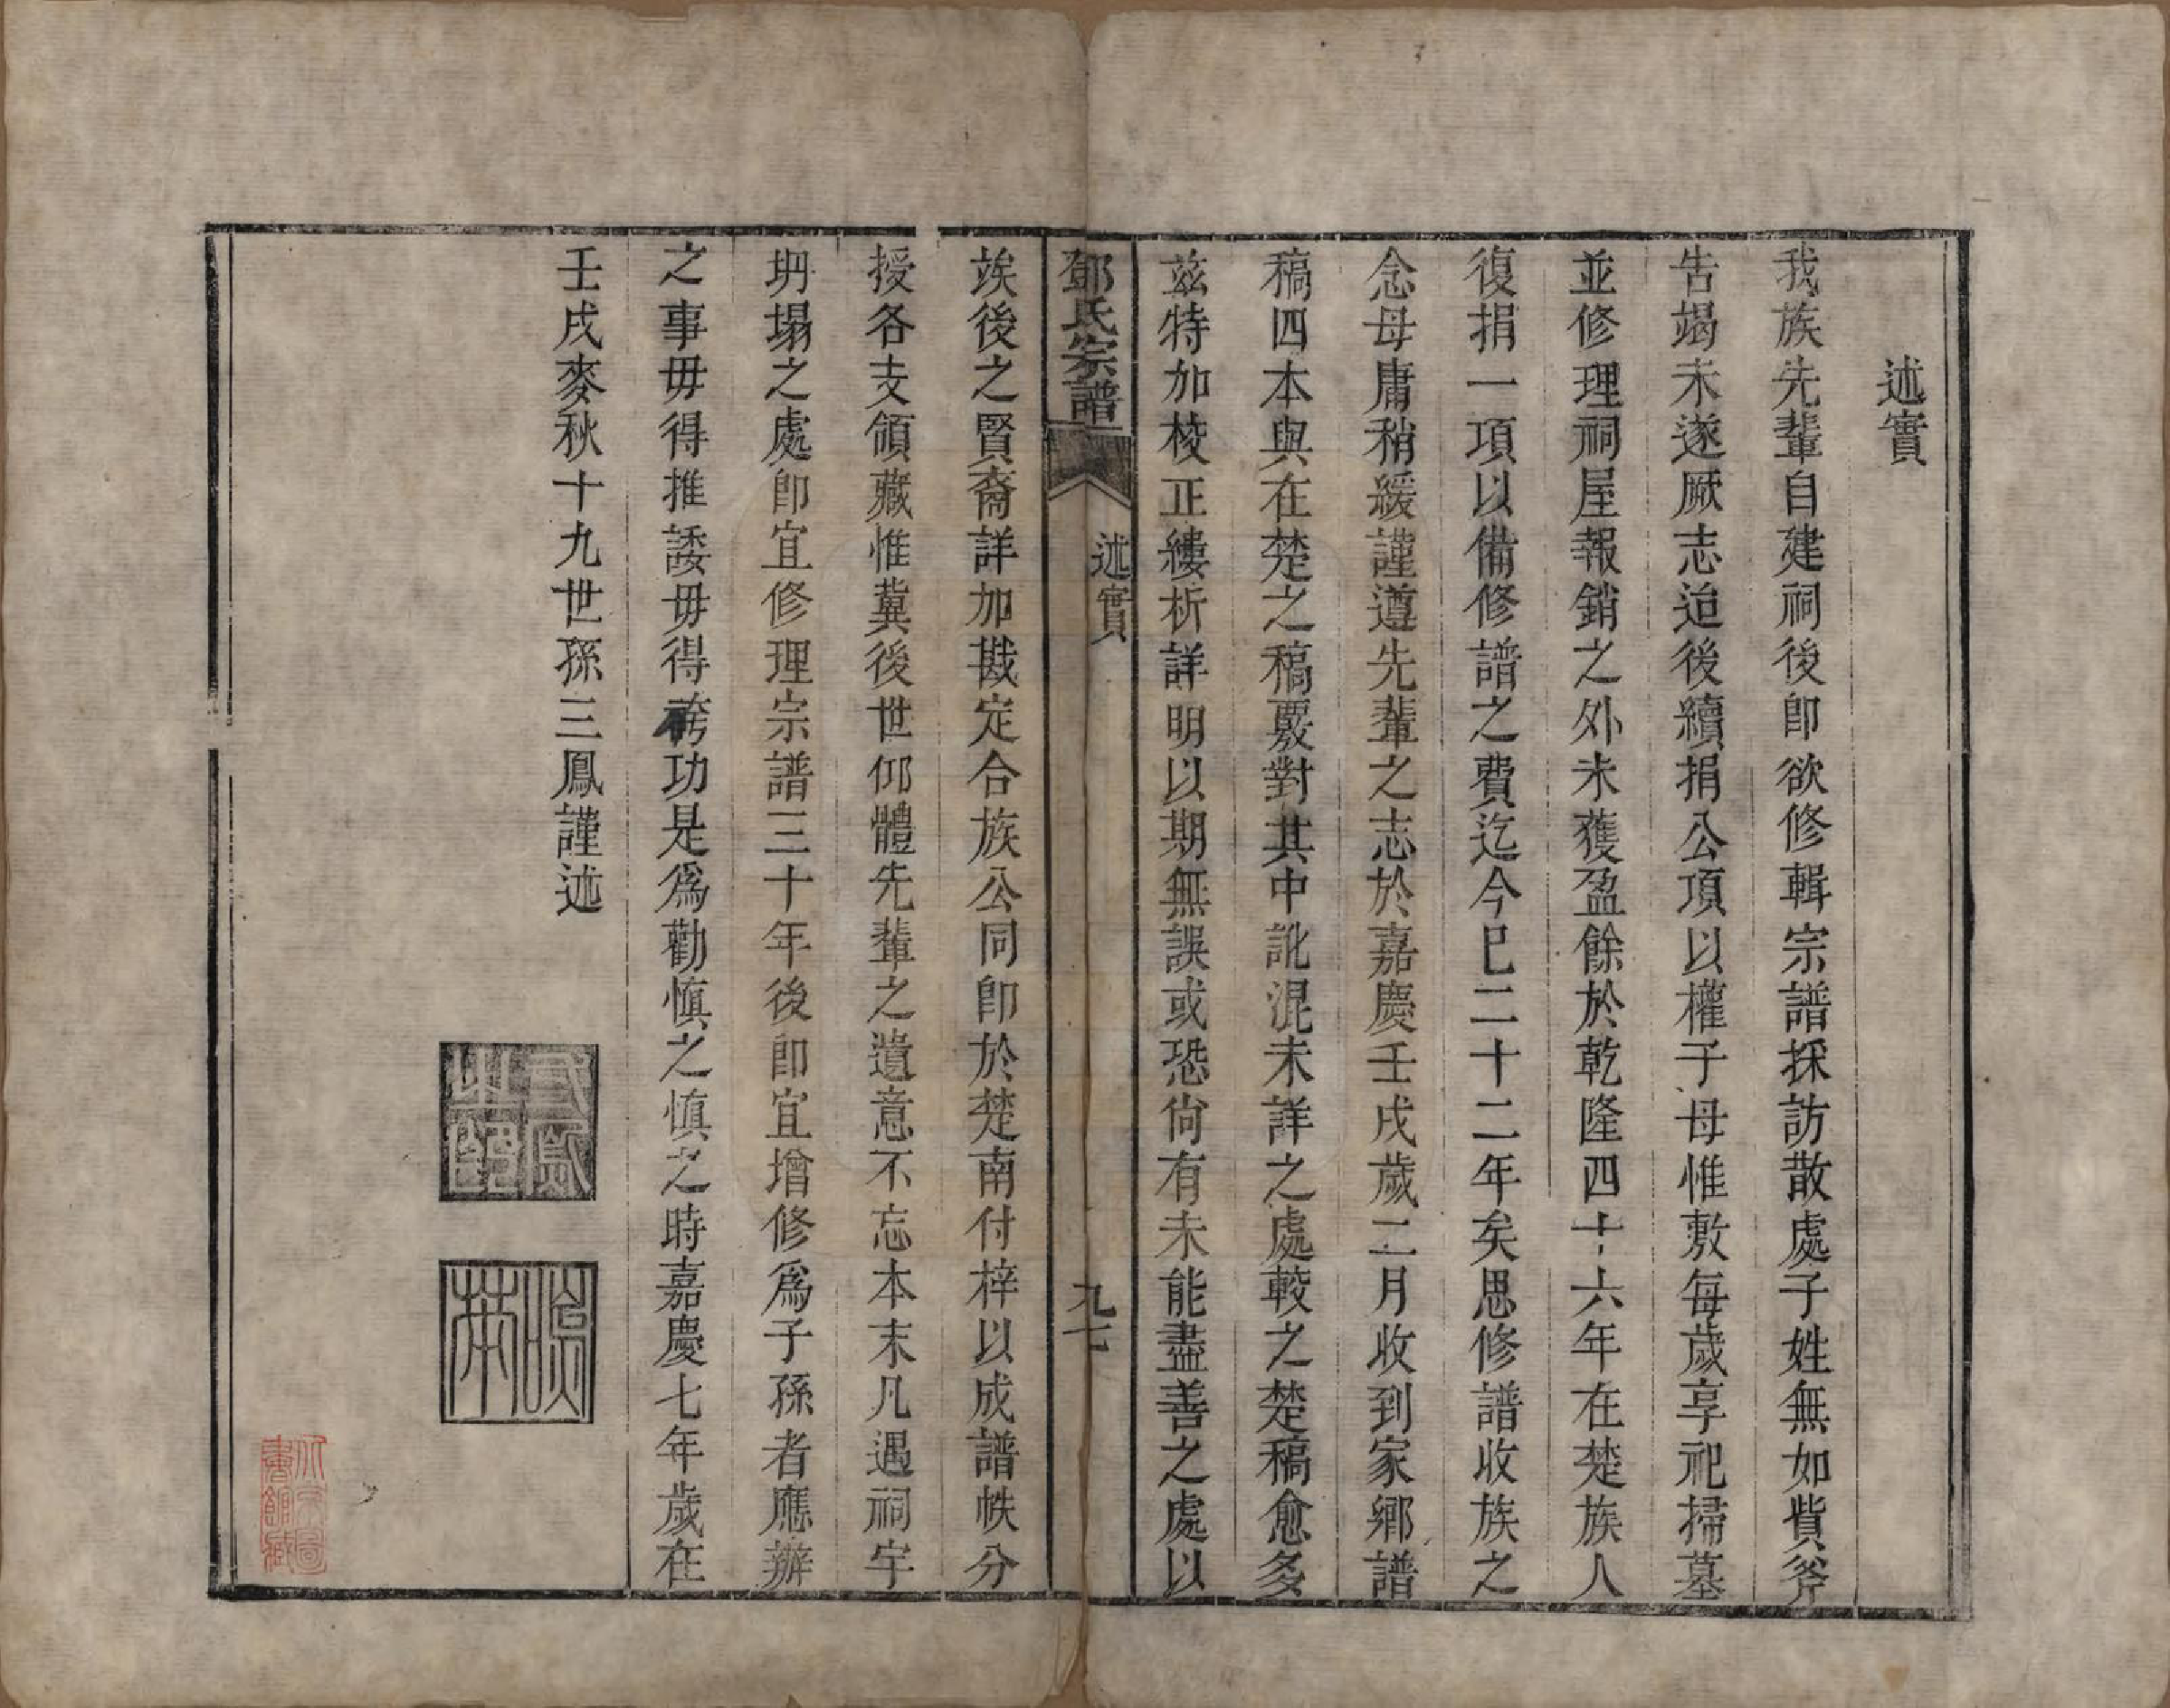 述實
我族先輩自建祠後卽欲修輯宗譜採訪散處子姓無如貲斧
告竭未遂厥志迨後續捐公項以權子母惟敷每歲享祀掃墓
並修理祠屋報銷之外未獲盈餘於乾隆四十六年在楚族人
復捐一項以備修譜之費迄今已二十二年矣思修譜收族之
念毋庸稍緩謹遵先輩之志於嘉慶壬戌歲二月收到家鄉譜
稿四本與在楚之稿覈對其中訛混未詳之處較之楚稿愈多
茲特加校正縷析詳明以期無誤或恐尙有未能盡善之處以
鄧氏宗譜
述實
九七
竢後之賢裔詳加戡定合族公同卽於楚南付梓以成譜帙分
授各支領藏惟冀後世仰體先輩之遺意不忘本末凡遇祠宇
坍塌之處卽宜修理宗譜三十年後卽宜增修爲子孫者應辦
之事毋得推諉毋得誇功是爲勸慎之慎之時嘉慶七年歲在
壬戌麥秋十九世孫三鳳謹述